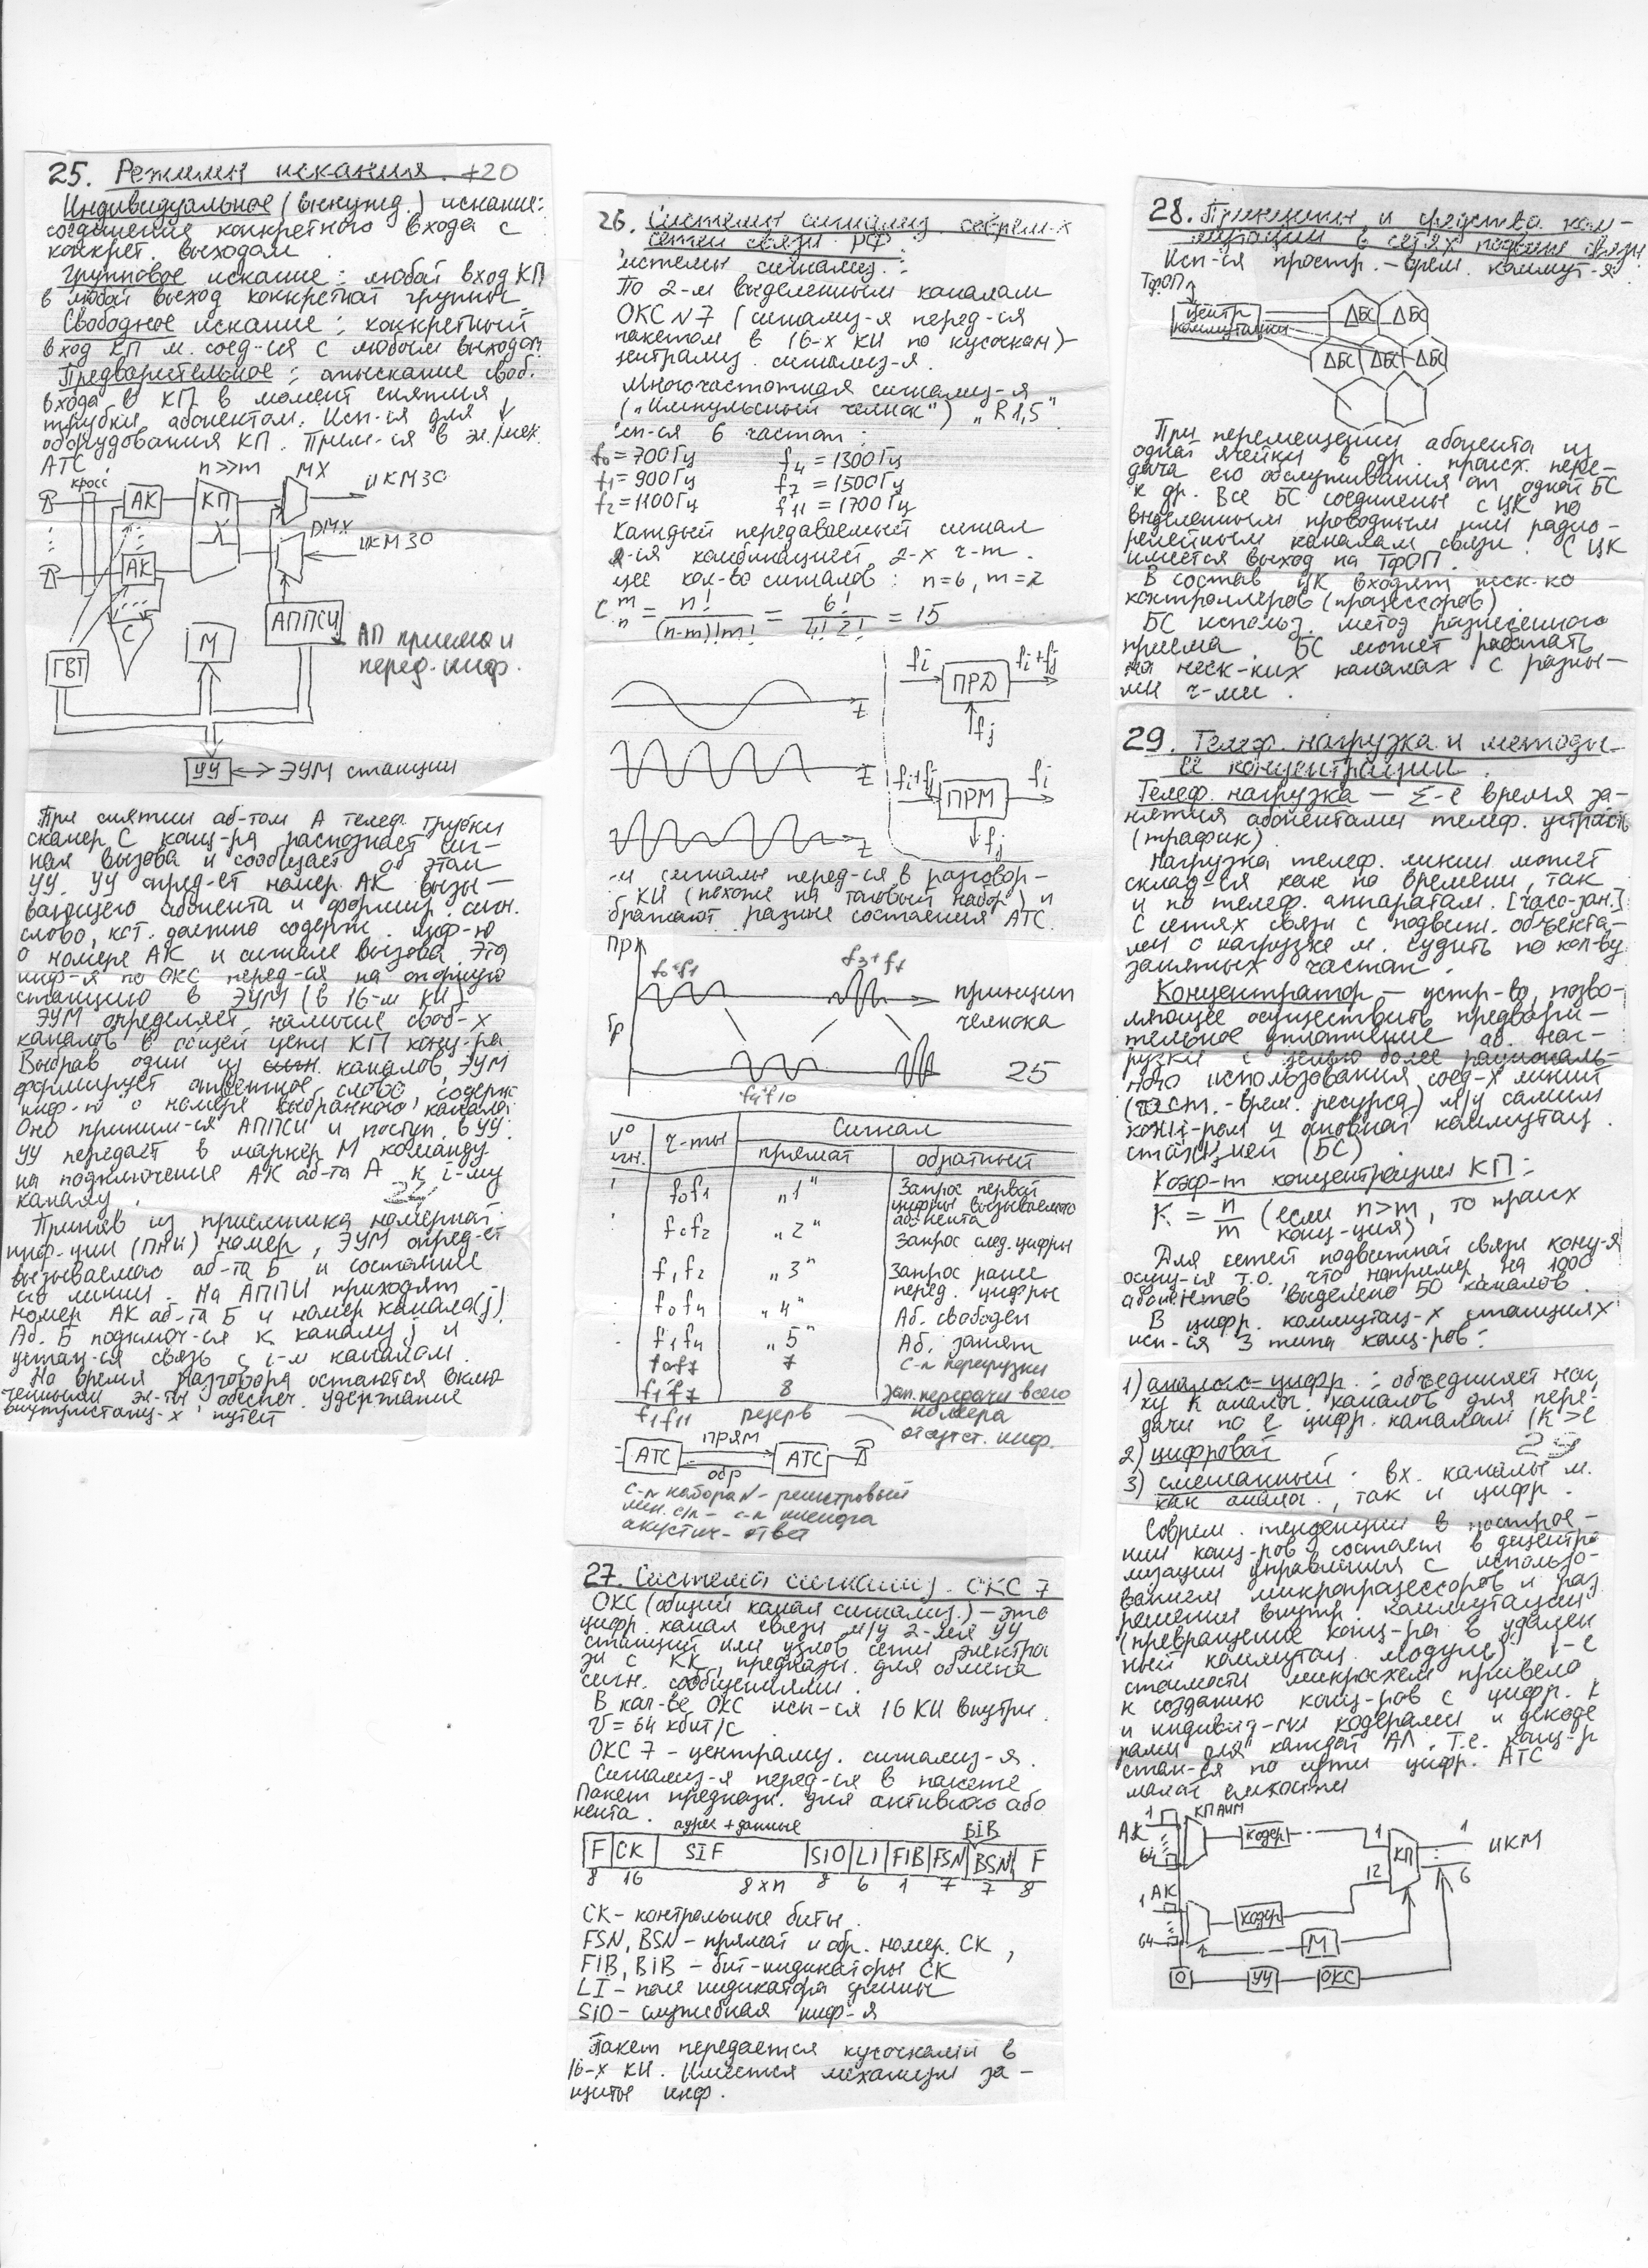 25. Режимы искания. +20
Индивидуальное (вынужд.) искание:
соединение конкретного входа с
конкрет. выходом.
Групповое искание: любой вход КП
в любой выход конкретной группы
Свободное искание: конкретный
вход КП м. соед-ся с любым выходом
Предварительное: отыскание своб.
входа в КП в момент снятия
трубки абонентом. Исп-ся для ↓
оборудования КП. Прим-ся в эл./мех.
АТС.
n>>m MX ИКМ30
кросс АК КП
DMX
ИКМ30
АК
С
ГВТ М АППСИ АП приема и
перед. инф.
УУ ⟷ ЭУМ станции
При снятии аб-том А телеф. трубки
сканер С конц-ра распознает сиг-
нал вызова и сообщает об этом
УУ. УУ опред-ет номер АК вызы-
вающего абонента и формир. сигн.
слово, кот. должно содерж. инф-ю
о номере АК и сигнале вызова. Эта
инф-я по ОКС перед-ся на опорную
станцию в ЭУМ (в 16-м КИ).
ЭУМ определяет наличие своб-х
каналов в общей цепи КП конц-ра
Выбрав один из каналов, ЭУМ
формирует ответное слово, содерж.
инф-ю о номере выбранного канала.
Оно приним-ся АППСИ и поступ. в УУ.
УУ передает в маркер М команду
на подключение АК аб-та А к i-му
каналу. 24
Приняв из приемника номерной
инф-ции (ПНИ) номер, ЭУМ опред-ет
вызываемого аб-та Б и состояние
его линии. На АППИ приходят
номер АК аб-та Б и номер канала (j).
Аб. Б подключ-ся к каналу j и
устан-ся связь с i-м каналом.
На время разговора остаются вклю
ченными эл-ты, обеспеч. удержание
внутристанц-х путей
26. Системы сигнализ. соврем-х
сетей связи РФ.
истемы сигнализ.:
По 2-м выделенным каналам
ОКС N7 (сигнализ-я перед-ся
пакетом в 16-х КИ по кусочкам)-
централиз. сигнализ-я.
Многочастотная сигнализ-я
(„Импульсный челнок") „R1,5"
исп-ся 6 частот:
f0=700Гц f4=1300Гц
f1=900Гц f7=1500Гц
f2=1100Гц f11=1700Гц
Каждый передаваемый сигнал
я-ся комбинацией 2-х ч-т.
щее кол-во сигналов: n=6, m=2
C m n = n! / (n-m)!m! = 6! / 4!2! = 15
fi ПРД fi+fj
t
fj
t
fi+fj ПРМ fi
t
fj
-и сигналы перед-ся в разговор-
КИ (похоже на тоновый набор) и
бражают разные состояния АТС.
пр
f0+f1 f3+f7
принцип
челнока
бр
25
f4+f10
N° ч-ты Сигнал
игн. прямой обратный
f0f1 „1" Запрос первой
цифры вызываемого
абонента
f0f2 „2" Запрос след. цифры
f1f2 „3" Запрос ранее
перед. цифры
f0f4 „4" Аб. свободен
f1f4 „5" Аб. занят
f0f7 7 с-л перегрузки
f1f7 8 зап. передачи всего
номера
f1f11 резерв отсутст. инф.
АТС ПРЯМ АТС
обр
с-л набора N - регистровый
лин. с/л - с-л шлейфа
акустич- ответ
27. Система сигнализ. ОКС 7
ОКС (общий канал сигнализ.) - это
цифр. канал связи м/у 2-мя УУ
станций или узлов сети электро
зи с КК, предназн. для обмена
сигн. сообщениями.
В кач-ве ОКС исп-ся 16 КИ внутри.
V = 64 кбит/с
ОКС 7 - централиз. сигнализ-я.
Сигнализ-я перед-ся в пакете
Пакет предназн. для активного або
нента.
адрес + данные BIB
F CK SIF SIO LI FIB FSN BSN F
8 16 8xn 8 6 1 7 7 8
СК - контрольные биты.
FSN, BSN - прямой и обр. номер. СК,
FIB, BIB - бит-индикаторы СК
LI - поле индикатора длины
SIO - служебная инф-я
Пакет передается кусочками в
16-х КИ. Имеется механизм за-
щиты инф.
28. Принципы и средства ком-
мутации в сетях подвиж. связи
Исп-ся простр.-врем. коммут-я
ТфОП
Центр
коммутации
ΔБС ΔБС
ΔБС ΔБС ΔБС
При перемещении абонента из
одной ячейки в др. происх. пере-
дача его обслуживания от одной БС
к др. Все БС соединены с ЦК по
выделенным проводным или радио-
релейным каналам связи. С ЦК
имеется выход на ТфОП.
В состав ЦК входят неск-ко
контроллеров (процессоров).
БС использ. метод разнесенного
приема. БС может работать
на неск-ких каналах с разны-
ми ч-ми.
29. Телеф. нагрузка и методы
её концентрации.
Телеф. нагрузка - Σ-е время за-
нятия абонентами телеф. устройств
(трафик).
Нагрузка телеф. линии может
склад-ся как по времени, так
и по телеф. аппаратам. [часо-зан.]
С сетях связи с подвижн. объекта-
ми о нагрузке м. судить по кол-ву
занятых частот.
Концентратор - устр-во, позво-
ляющее осуществить предвари-
тельное уплотнение аб. наг-
рузки с целью более рациональ-
ного использования соед-х линий
(част.-врем. ресурса) м/у самим
конц-ром и опорной коммутац.
станцией (БС).
Коэф-т концентрации КП:
K = n/m (если n>m, то происх
конц-ция)
Для сетей подвижной связи конц-я
осущ-ся т.о., что например на 1000
абонентов выделено 50 каналов.
В цифр. коммутац-х станциях
исп-ся 3 типа конц-ров:
1) аналого-цифр.: объединяет наг
ку K аналог. каналов для пере-
дачи по l цифр. каналам (K>l
2) цифровой 29
3) смешанный: вх. каналы м.
как аналог., так и цифр.
Соврем. тенденции в построе-
нии конц-ров состоят в децентра
лизации управления с использо-
ванием микропроцессоров и раз
решении внутр. коммутации
(превращение конц-ра в удален
ный коммутац. модуль). ↓-е
стоимости микросхем привело
к созданию конц-ров с цифр. К
и индивид-ми кодерами и декоде
рами для каждой АЛ. Т.е. конц-р
стан-ся по сути цифр. АТС
малой емкости
1 КПАИМ
АК кодер 1 КП 1 ИКМ
64 12 6
1 АК
кодер
64 М
О УУ ОКС